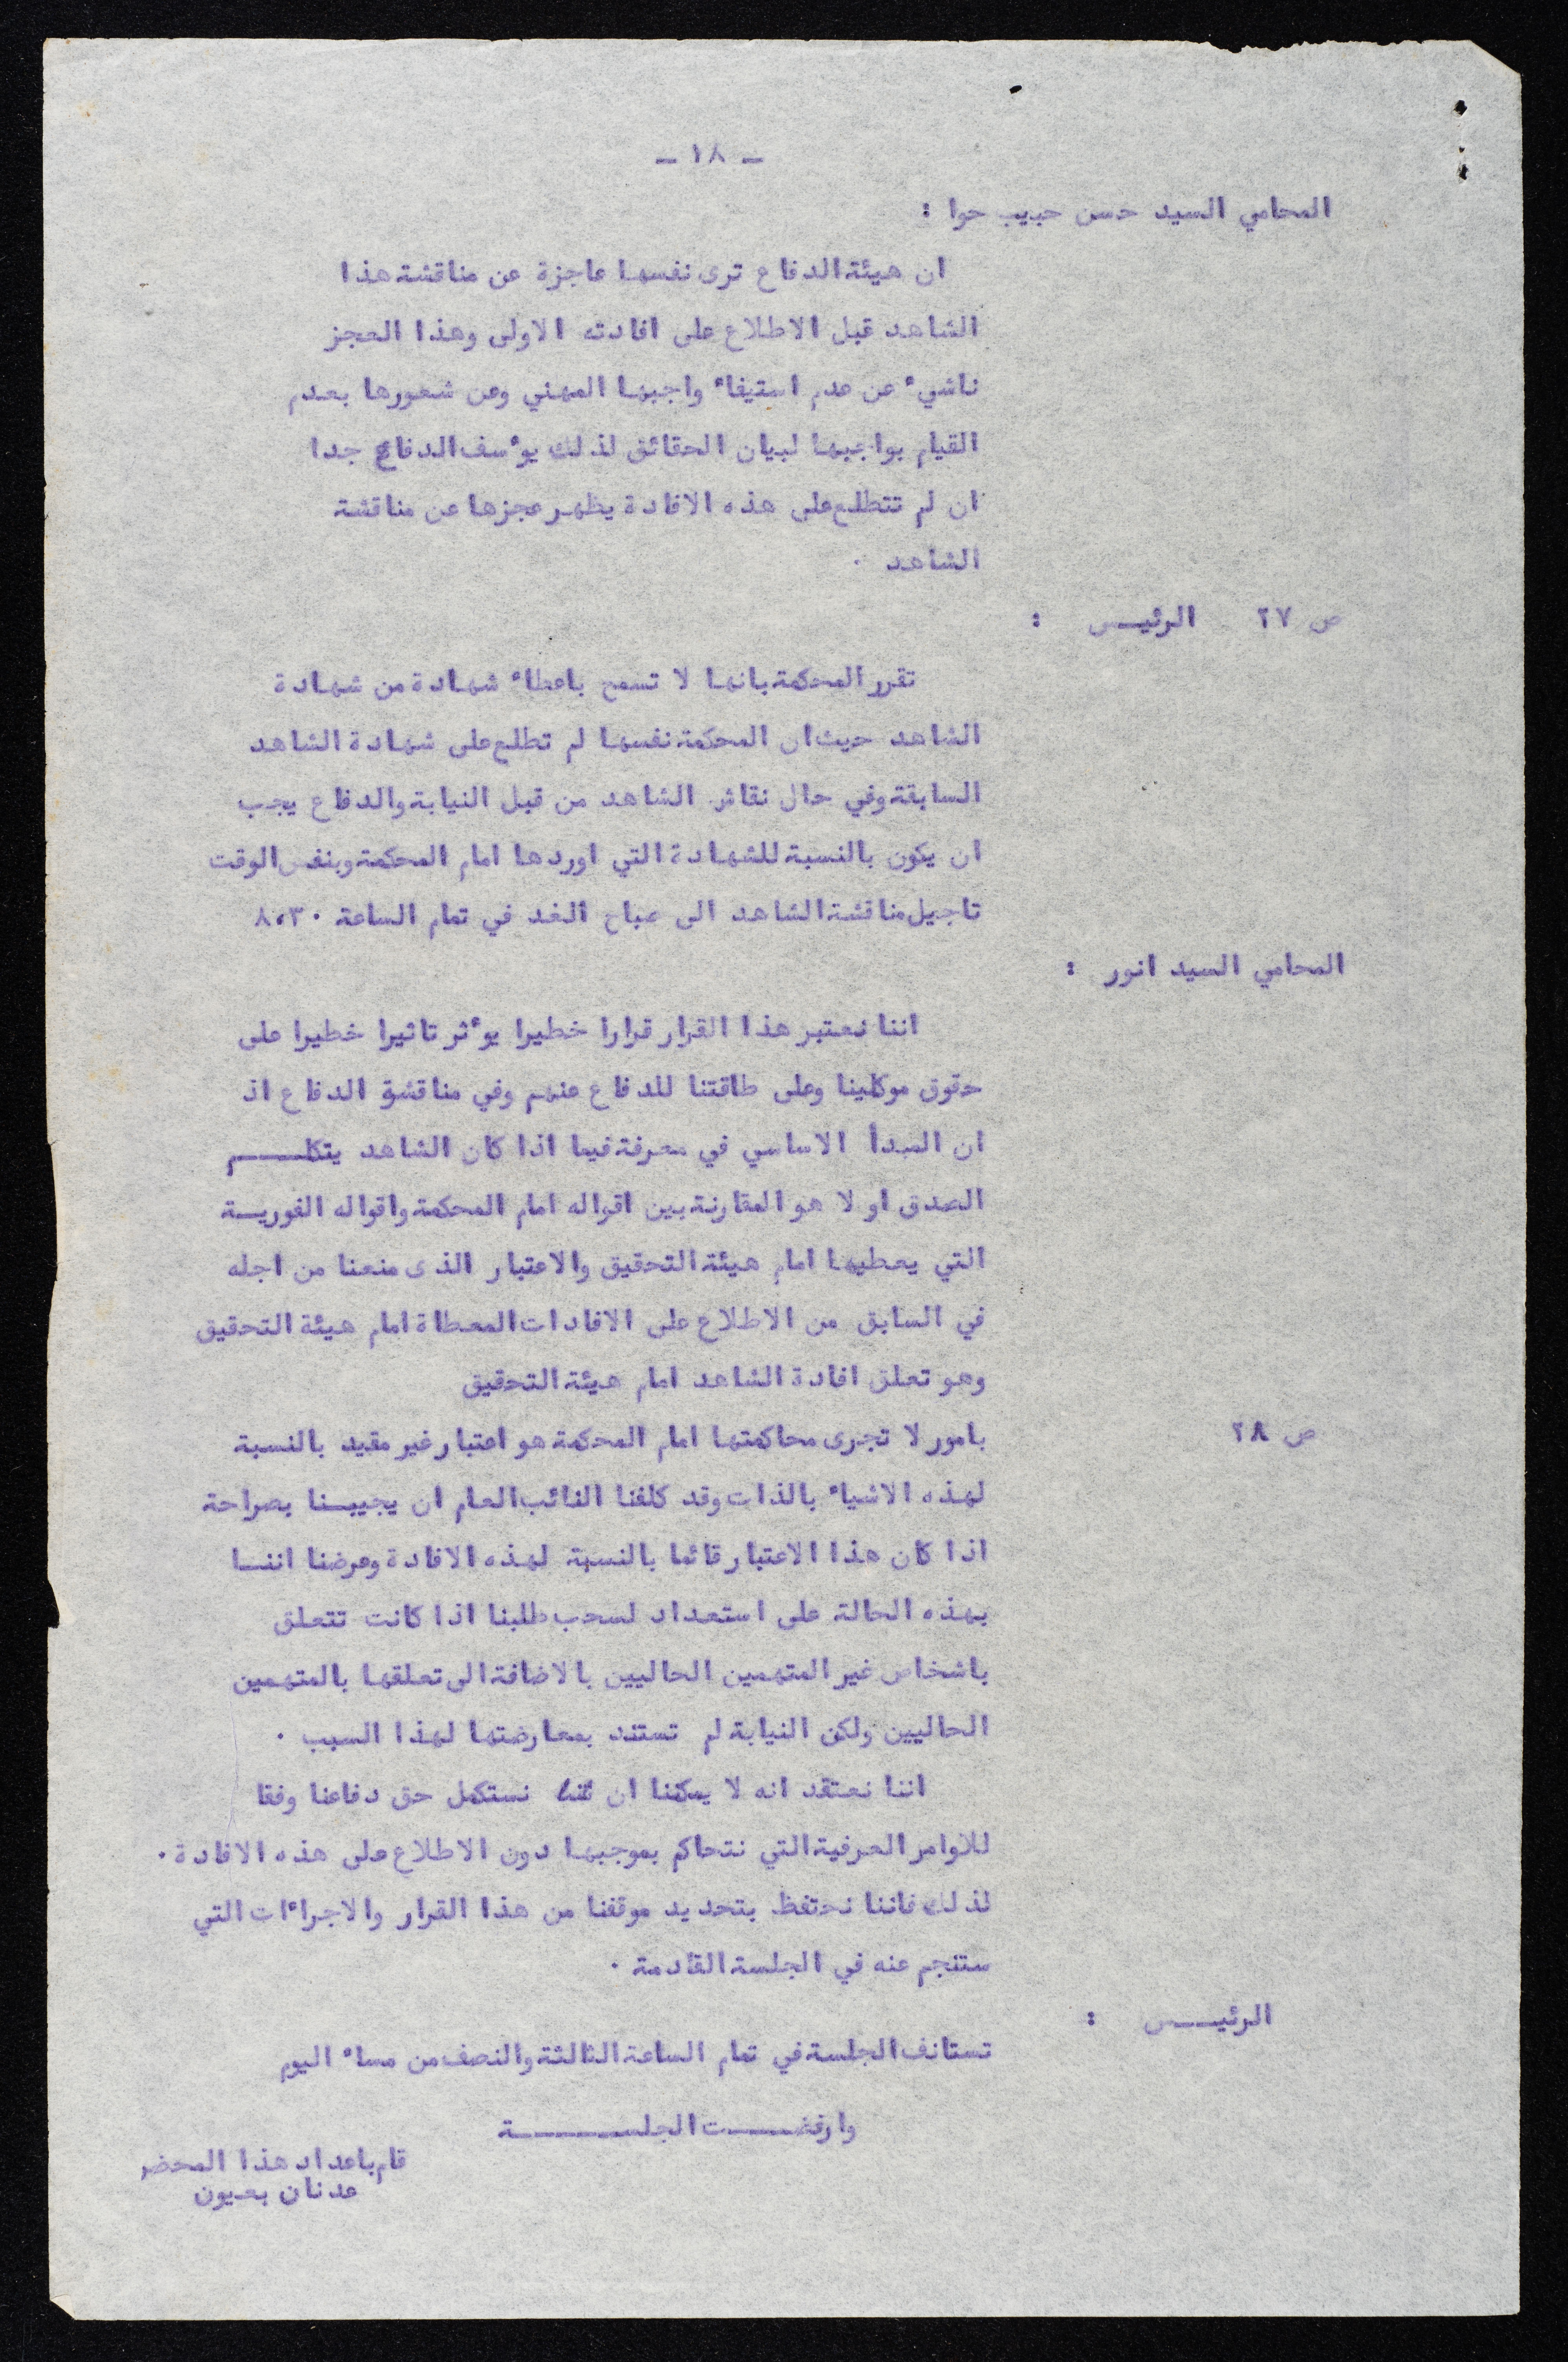 - ١٨ -
المحامي السيد حسن حبيب حوا :
ان هيئة الدفاع ترى نفسها عاجزة عن مناقشة هذا
الشاهد قبل الاطلاع على افادته الاولى وهذا العجز
ناشيء عن عدم استيفاء واجبها المهني وعن شعورها بعدم
القيام بواجبها لبيان الحقائق لذلك يوءسف الدفاع جدا
ان لم تتطلع على هذه الافادة يظهر عجزها عن مناقشة
الشاهد .
ص ٢٧ الرئيـــس :
تقرر المحكمة بانها لا تسمح باعطاء شهادة من شهادة
الشاهد حيث ان المحكمة نفسها لم تطلع على شهادة الشاهد
السابقة وفي حال نقاش الشاهد من قبل النيابة والدفاع يجب
ان يكون بالنسبة للشهادة التي اوردها امام المحكمة وبنفس الوقت
تاجيل مناقشة الشاهد الى صباح الغد في تمام الساعة ٨،٣٠
المحامي السيد انور :
اننا نعتبر هذا القرار قرارا خطيرا يوءثر تاثيرا خطيرا على
حقوق موكلينا وعلى طاقتنا للدفاع عنهم وفي مناقشة الدفاع اذ
ان المبدأ الاساسي في معرفة فيما اذا كان الشاهد يتكلـــــم
الصدق او لا هو المقارنة بين اقواله امام المحكمة واقواله الفوريـــة
التي يعطيها امام هيئة التحقيق والاعتبار الذى منعنا من اجله
في السابق من الاطلاع على الافادات المعطاة امام هيئة التحقيق
وهو تعلق افادة الشاهد امام هيئة التحقيق
ص ٢٨ بامور لا تجرى محاكمتها امام المحكمة هو اعتبار غير مقيد بالنسبة
لهذه الاشياء بالذات وقد كلفنا النائب العام ان يجيبـــنا بصراحة
اذا كان هذا الاعتبار قائما بالنسبة لهذه الافادة وعرضنا اننـــا
بهذه الحالة على استعداد لسحب طلبنا اذا كانت تتعلق
باشخاص غير المتهمين الحاليين بالاضافة الى تعلقها بالمتهمين
الحاليين ولكن النيابة لم تستند بمعارضتها لهذا السبب .
اننا نعتقد انه لا يمكننا ان نستكمل حق دفاعنا وفقا
للاوامر العرفية التي نتحاكم بموجبها دون الاطلاع على هذه الافادة .
لذلك فاننا نحتفظ بتحديد موقفنا من هذا القرار والاجراءات التي
ستنجم عنه في الجلسة القادمة .
الرئيـــــس :
تستانف الجلسة في تمام الساعة الثالثة والنصف من مساء اليوم
وارفضـــــت الجلســـــــــة
قام باعداد هذا المحضر
عدنان بعيون